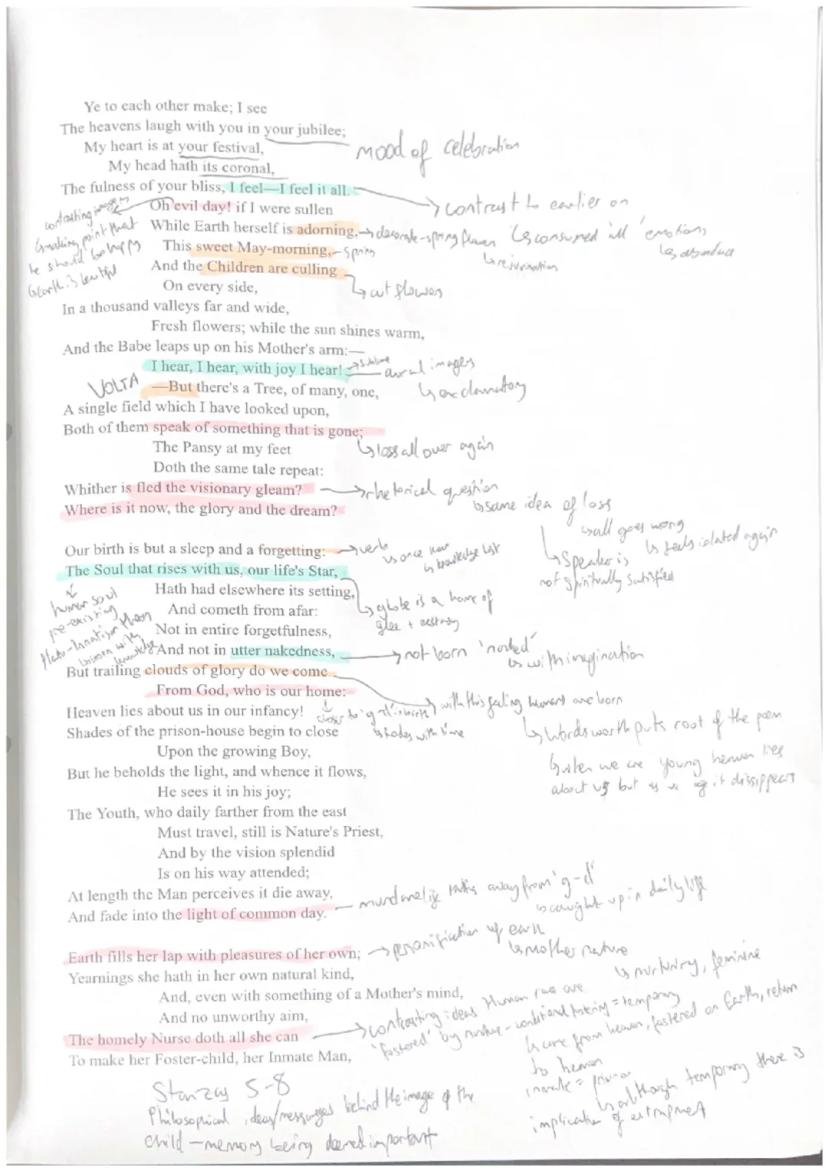 Ye to each other make; I see
The heavens laugh with you in your jubilee;
My heart is at your festival,
mood of celebration
My head hath its coronal,
The fulness of your bliss, I feel—I feel it all.
contrast to earlier on
Oh evil day! if I were sullen
contrasting images
making point that
he should be happy
earth is beautiful
While Earth herself is adorning,
decorate-spring flowers
consumed 'all' emotions
rejuvenation
This sweet May-morning,
spring
And the Children are culling
cut flowers
On every side,
In a thousand valleys far and wide,
Fresh flowers; while the sun shines warm,
And the Babe leaps up on his Mother's arm:—
I hear, I hear, with joy I hear!
aural imagery
exclamatory
VOLTA
—But there's a Tree, of many, one,
A single field which I have looked upon,
Both of them speak of something that is gone;
loss all over again
The Pansy at my feet
Doth the same tale repeat:
Whither is fled the visionary gleam?
rhetorical question
same idea of loss
Where is it now, the glory and the dream?
all goes wrong
feels isolated again
Speaker is
not spiritually satisfied
Our birth is but a sleep and a forgetting:
verb
knowledge lost
The Soul that rises with us, our life's Star,
human soul
pre-existing
Hath had elsewhere its setting,
globe is a home of
glee +
And cometh from afar:
Not in entire forgetfulness,
And not in utter nakedness,
not born 'naked'
with imagination
But trailing clouds of glory do we come
with this feeling humans are born
From God, who is our home:
Heaven lies about us in our infancy!
Shades of the prison-house begin to close
fades with time
Wordsworth puts root of the poem
when we are young heaven lies
about us but as we age it dissappears
Upon the growing Boy,
But he beholds the light, and whence it flows,
He sees it in his joy;
The Youth, who daily farther from the east
Must travel, still is Nature's Priest,
And by the vision splendid
Is on his way attended;
At length the Man perceives it die away,
And fade into the light of common day.
mundane life takes away from 'g-d'
caught up in daily life
Earth fills her lap with pleasures of her own;
personification of earth
mother nature
nurturing, feminine
Yearnings she hath in her own natural kind,
And, even with something of a Mother's mind,
And no unworthy aim,
The homely Nurse doth all she can
contrasting ideas Human race are
'fostered' by nurture - conditional fostering = temporary
come from heaven, fostered on Earth, return
to heaven
To make her Foster-child, her Inmate Man,
inmate = prison
although temporary there is
implication of entrapment
Stanzas 5-8
Philosophical ideas/messages behind the image of the
child - memory being deemed important